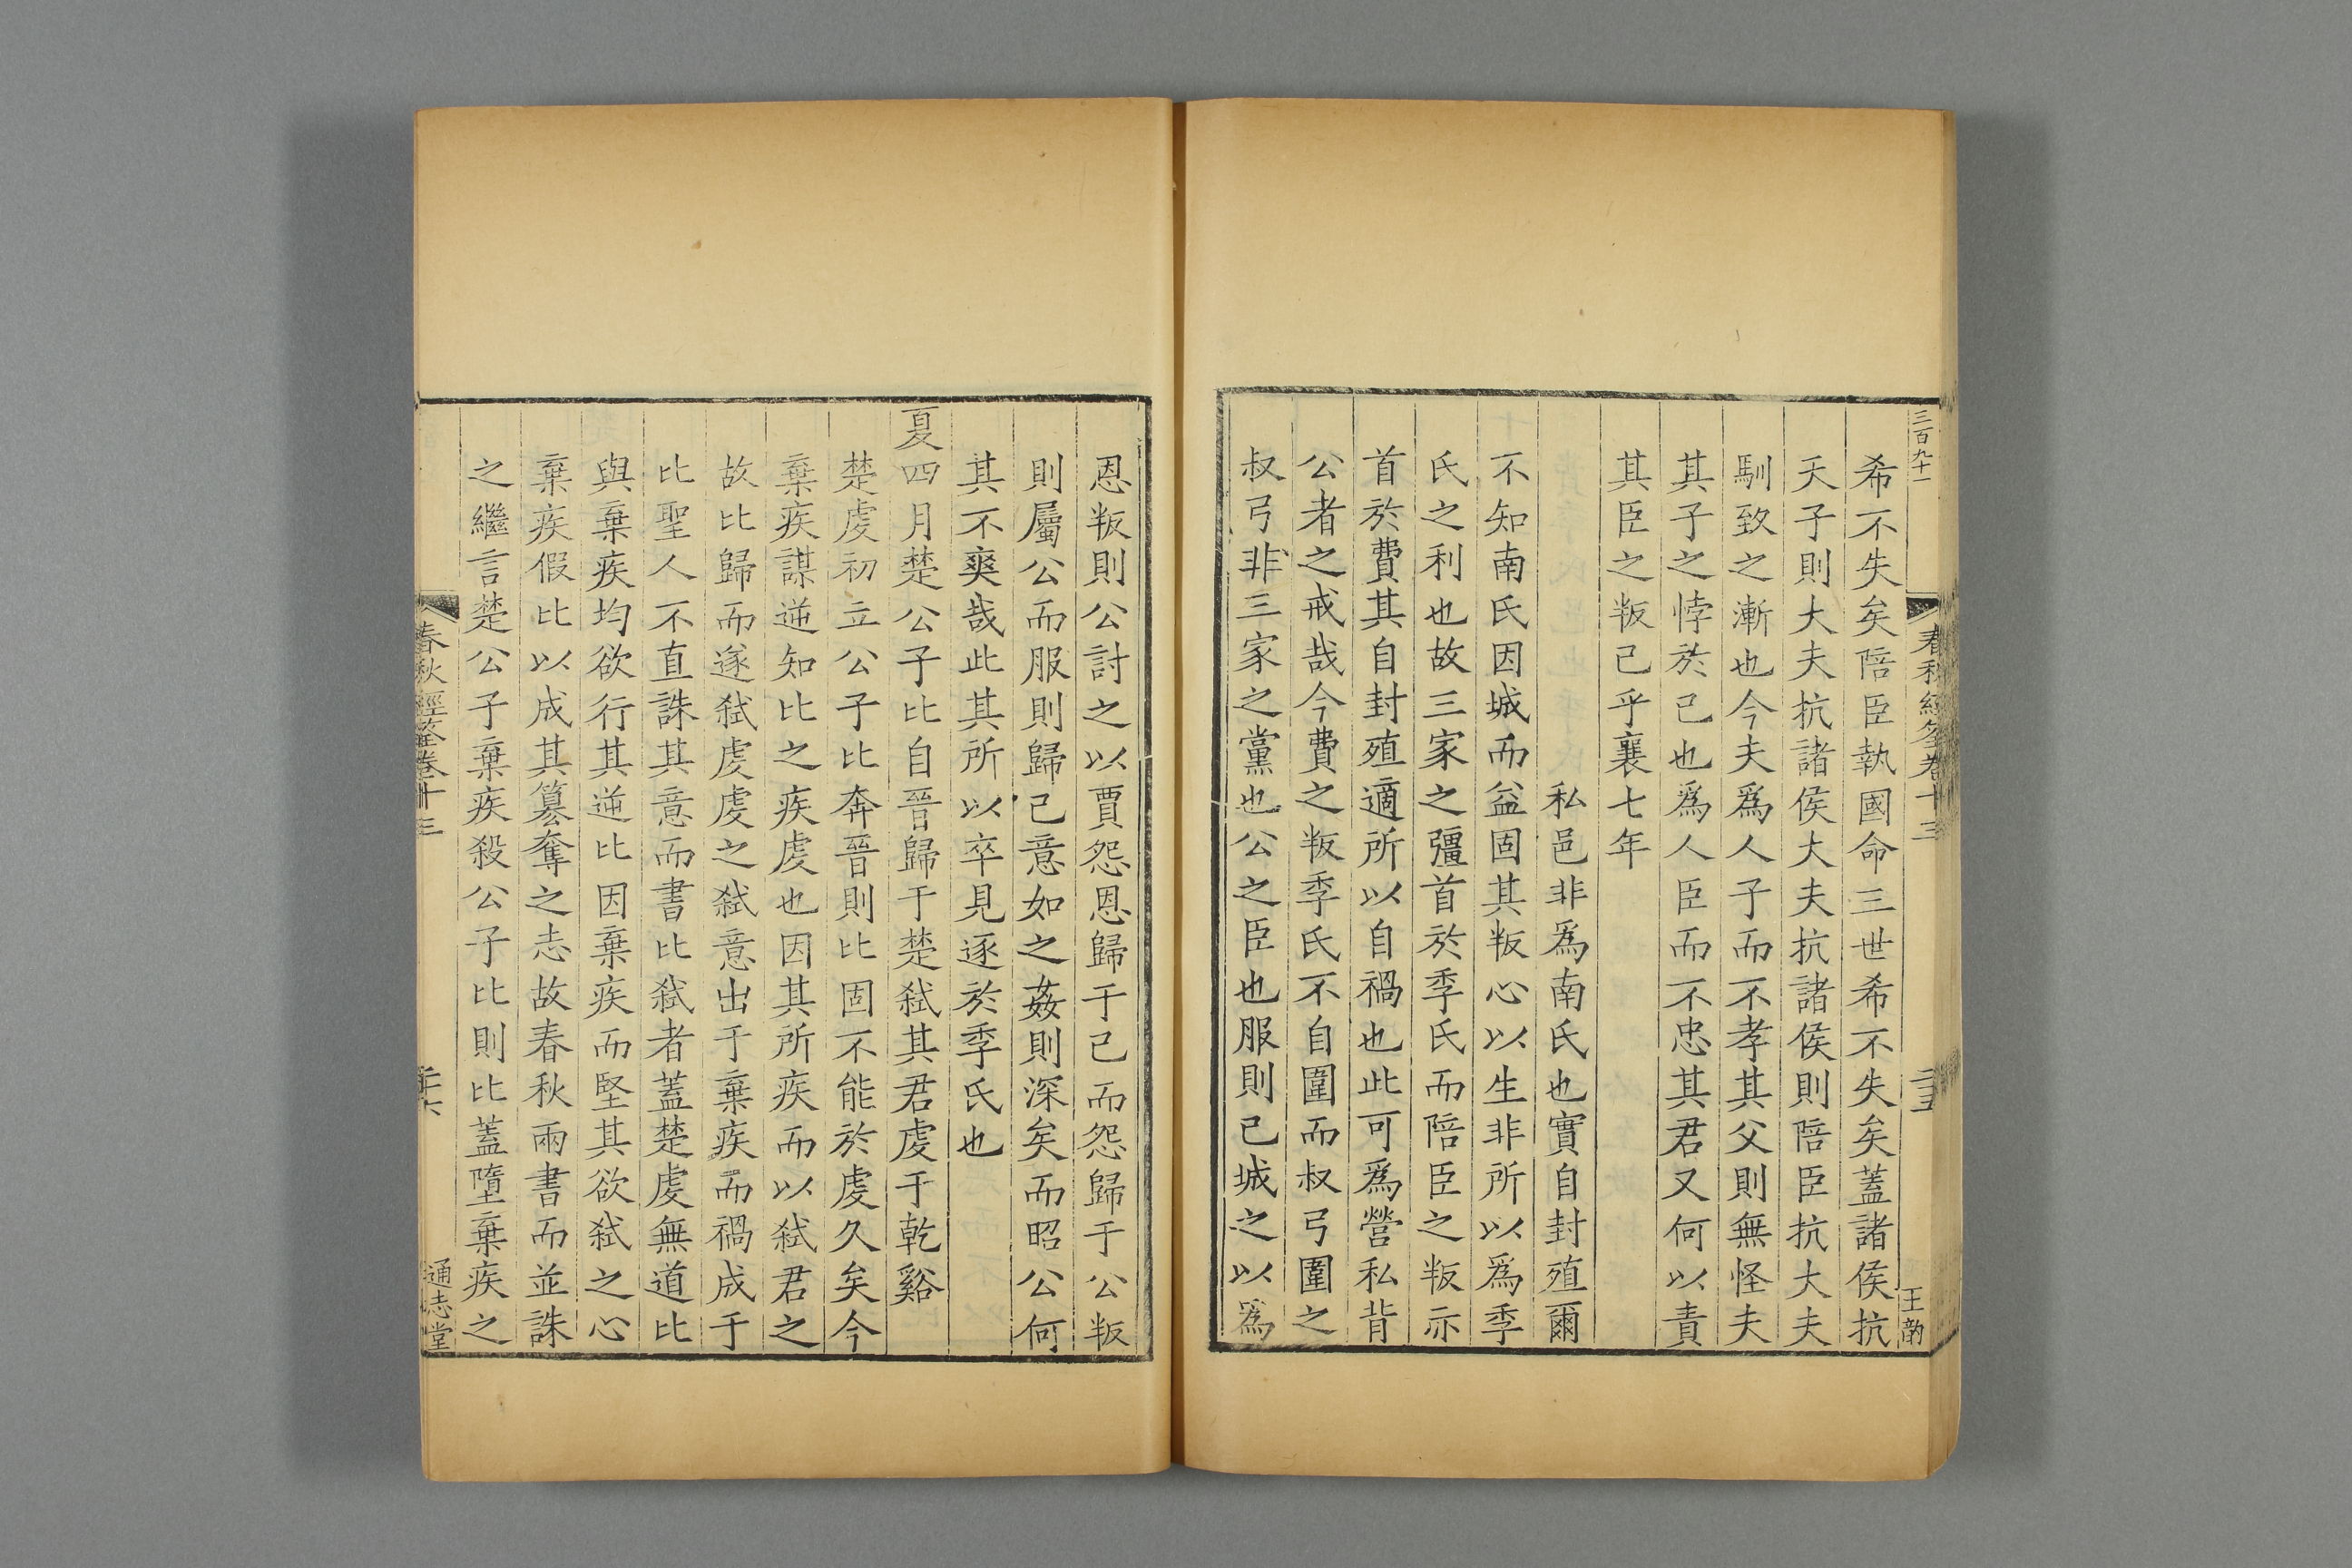 三百九十一
春秋經筌卷十三
二十五
王勛
希不失矣陪臣執國命三世希不失矣蓋諸侯抗
天子則大夫抗諸侯大夫抗諸侯則陪臣抗大夫
馴致之漸也今夫爲人子而不孝其父則無怪夫
其子之悖於己也爲人臣而不忠其君又何以責
其臣之叛己乎襄七年
私邑非爲南氏也實自封殖爾
不知南氏因城而益固其叛心以生非所以爲季
氏之利也故三家之彊首於季氏而陪臣之叛示
首於費其自封殖適所以自禍也此可爲營私背
公者之戒哉今費之叛季氏不自圍而叔弓圍之
叔弓非三家之黨也公之臣也服則已城之以爲
恩叛則公討之以賈怨恩歸于己而怨歸于公叛
則屬公而服則歸己意如之姦則深矣而昭公何
其不爽哉此其所以卒見逐於季氏也
夏四月楚公子比自晉歸于楚弑其君虔于乾谿
楚虔初立公子比奔晉則比固不能於虔久矣今
棄疾謀逆知比之疾虔也因其所疾而以弑君之
故比歸而遂弑虔虔之弑意出于棄疾而禍成于
比聖人不直誅其意而書比弑者蓋楚虔無道比
與棄疾均欲行其逆比因棄疾而堅其欲弑之心
棄疾假比以成其篡奪之志故春秋兩書而並誅
之繼言楚公子棄疾殺公子比則比蓋墮棄疾之
春秋經筌卷十三
二十六
通志堂